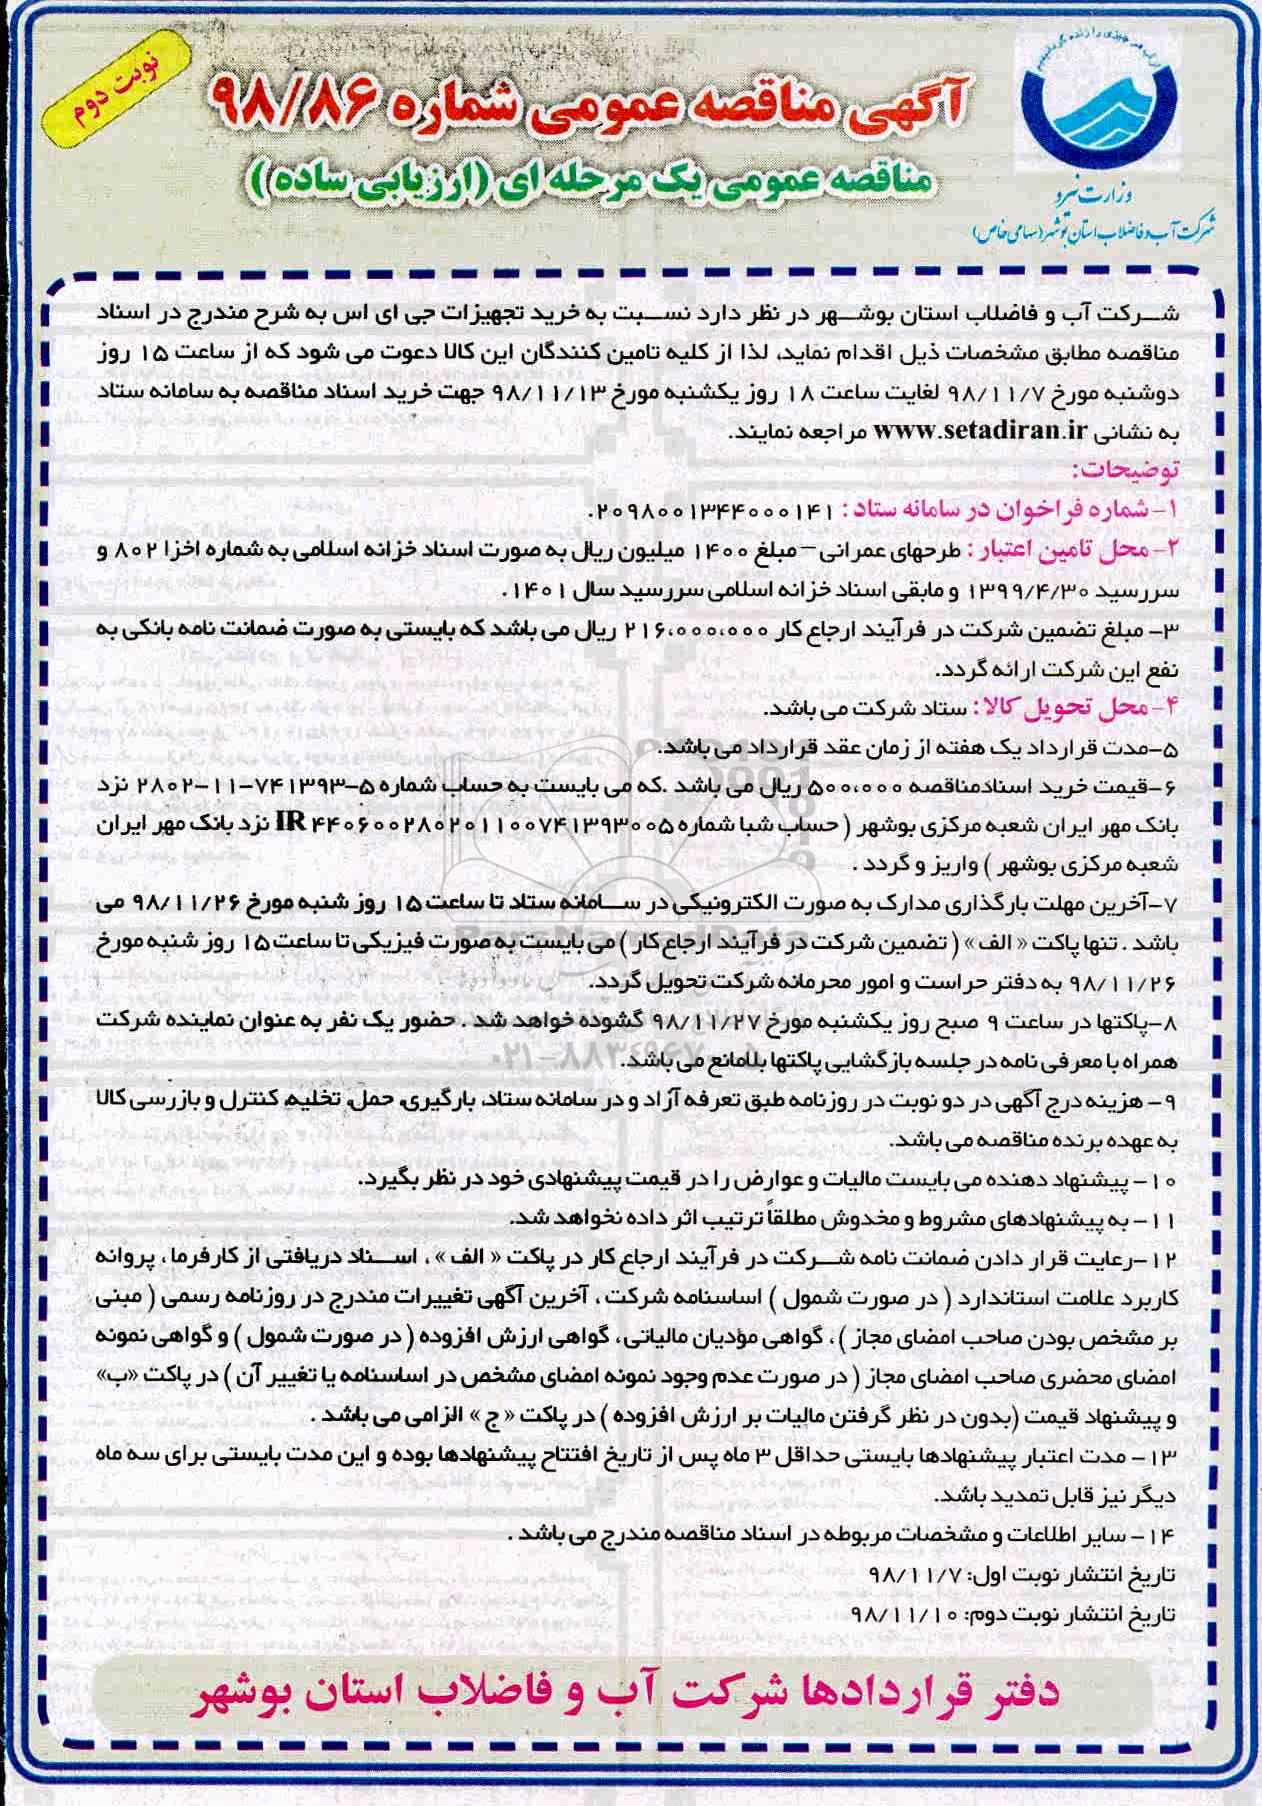 نوبت دوم
آگهی مناقصه عمومی شماره ۹۸/۸۶
مناقصه عمومی یک مرحله ای (ارزیابی ساده)
وزارت نیرو
شرکت آب و فاضلاب استان بوشهر (سهامی خاص)
شرکت آب و فاضلاب استان بوشهر در نظر دارد نسبت به خرید تجهیزات جی ای اس به شرح مندرج در اسناد
مناقصه مطابق مشخصات ذیل اقدام نماید، لذا از کلیه تامین کنندگان این کالا دعوت می شود که از ساعت ۱۵ روز
دوشنبه مورخ ۹۸/۱۱/۷ لغایت ساعت ۱۸ روز یکشنبه مورخ ۹۸/۱۱/۱۳ جهت خرید اسناد مناقصه به سامانه ستاد
به نشانی www.setadiran.ir مراجعه نمایند.
توضیحات:
۱- شماره فراخوان در سامانه ستاد: ۲۰۹۸۰۰۱۳۴۴۰۰۰۱۴۱.
۲- محل تامین اعتبار: طرحهای عمرانی – مبلغ ۱۴۰۰ میلیون ریال به صورت اسناد خزانه اسلامی به شماره اخزا ۸۰۲ و
سررسید ۱۳۹۹/۴/۳۰ و مابقی اسناد خزانه اسلامی سررسید سال ۱۴۰۱.
۳- مبلغ تضمین شرکت در فرآیند ارجاع کار ۲۱۶،۰۰۰،۰۰۰ ریال می باشد که بایستی به صورت ضمانت نامه بانکی به
نفع این شرکت ارائه گردد.
۴- محل تحویل کالا: ستاد شرکت می باشد.
۵-مدت قرارداد یک هفته از زمان عقد قرارداد می باشد.
۶-قیمت خرید اسنادمناقصه ۵۰۰،۰۰۰ ریال می باشد .که می بایست به حساب شماره ۵-۷۴۱۳۹۳-۱۱-۲۸۰۲ نزد
بانک مهر ایران شعبه مرکزی بوشهر ( حساب شبا شماره IR ۴۴۰۶۰۰۲۸۰۲۰۱۱۰۰۷۴۱۳۹۳۰۰۵ نزد بانک مهر ایران
شعبه مرکزی بوشهر ) واریز و گردد .
۷-آخرین مهلت بارگذاری مدارک به صورت الکترونیکی در سامانه ستاد تا ساعت ۱۵ روز شنبه مورخ ۹۸/۱۱/۲۶ می
باشد . تنها پاکت « الف » ( تضمین شرکت در فرآیند ارجاع کار ) می بایست به صورت فیزیکی تا ساعت ۱۵ روز شنبه مورخ
۹۸/۱۱/۲۶ به دفتر حراست و امور محرمانه شرکت تحویل گردد.
۸-پاکتها در ساعت ۹ صبح روز یکشنبه مورخ ۹۸/۱۱/۲۷ گشوده خواهد شد . حضور یک نفر به عنوان نماینده شرکت
همراه با معرفی نامه در جلسه بازگشایی پاکتها بلامانع می باشد.
۹- هزینه درج آگهی در دو نوبت در روزنامه طبق تعرفه آزاد و در سامانه ستاد، بارگیری، حمل، تخلیه، کنترل و بازرسی کالا
به عهده برنده مناقصه می باشد.
۱۰- پیشنهاد دهنده می بایست مالیات و عوارض را در قیمت پیشنهادی خود در نظر بگیرد.
۱۱- به پیشنهادهای مشروط و مخدوش مطلقاً ترتیب اثر داده نخواهد شد.
۱۲-رعایت قرار دادن ضمانت نامه شرکت در فرآیند ارجاع کار در پاکت « الف » ، اسناد دریافتی از کارفرما ، پروانه
کاربرد علامت استاندارد ( در صورت شمول ) اساسنامه شرکت ، آخرین آگهی تغییرات مندرج در روزنامه رسمی ( مبنی
بر مشخص بودن صاحب امضای مجاز ) ، گواهی مؤدیان مالیاتی ، گواهی ارزش افزوده ( در صورت شمول ) و گواهی نمونه
امضای محضری صاحب امضای مجاز ( در صورت عدم وجود نمونه امضای مشخص در اساسنامه یا تغییر آن ) در پاکت «ب»
و پیشنهاد قیمت (بدون در نظر گرفتن مالیات بر ارزش افزوده ) در پاکت « ج » الزامی می باشد .
۱۳- مدت اعتبار پیشنهادها بایستی حداقل ۳ ماه پس از تاریخ افتتاح پیشنهادها بوده و این مدت بایستی برای سه ماه
دیگر نیز قابل تمدید باشد.
۱۴- سایر اطلاعات و مشخصات مربوطه در اسناد مناقصه مندرج می باشد .
تاریخ انتشار نوبت اول: ۹۸/۱۱/۷
تاریخ انتشار نوبت دوم: ۹۸/۱۱/۱۰
دفتر قراردادها شرکت آب و فاضلاب استان بوشهر
ParsNamadData